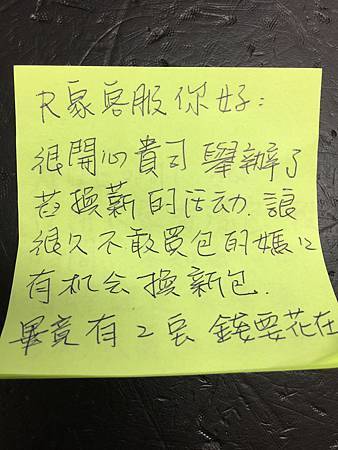 R家客服你好:
很開心貴司舉辦了
舊換薪的活动.讓
很久不敢買包的媽咪
有机会換新包.
畢竟有2宝錢要花在